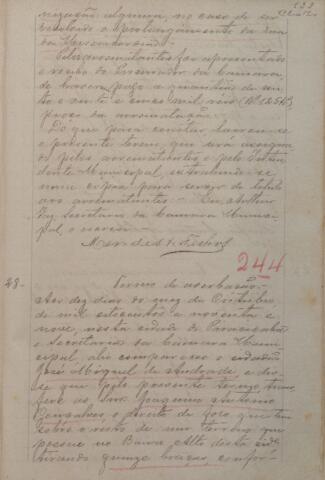 nização alguma, no caso de ser
prolongamento da rua
apresentado
o recibo do Procurador da Camara,
de haver pago a quantia de cen-
to e vinte e cinco mil reis (Rs 125$)
preço da arrematação.
Do que para constar lavrou-se
o presente termo, que será assigna-
do pelos arrematantes e pelo Inten-
dente Municipal, extrahindo-se
uma copia para servir de titulo
aos arrematantes. Eu, Arthur
Secretario da Camara Munici-
pal, o escrevi.
244
48-
Termo de averbação
Aos dez dias do mez de Outubro
de mil oitocentos e noventa e
nove, nesta cidade de Piracicaba
e Secretaria da Camara Muni-
cipal, ahi compareceo o cidadão
José Miguel de Andrade, e dis-
se que pelo presente termo, trans-
fere ao Snr. Joaquim Antonio
Gonçalves, o direito de foro que tem
sobre o resto de um terreno que
possue no Bairro Alto desta cida-
de tirando quinze braças confor-